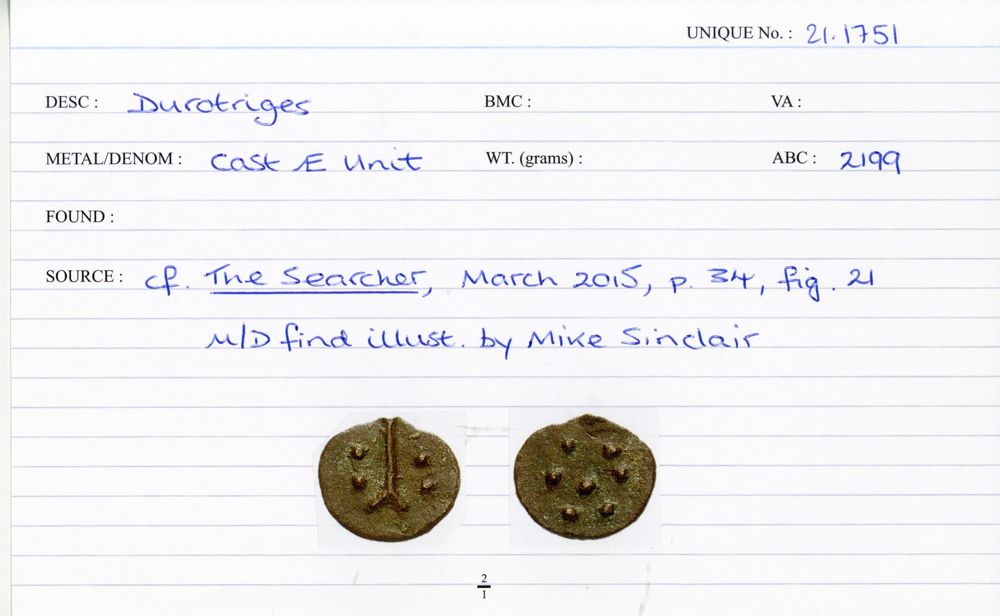 UNIQUE No. : 21.1751
DESC : Durotriges BMC : VA :
METAL/DENOM : Cast Æ Unit WT. (grams) : ABC : 2199
FOUND :
SOURCE : cf. The Searcher, March 2015, p. 34, fig. 21
M/D find illust. by Mike Sinclair
2
1